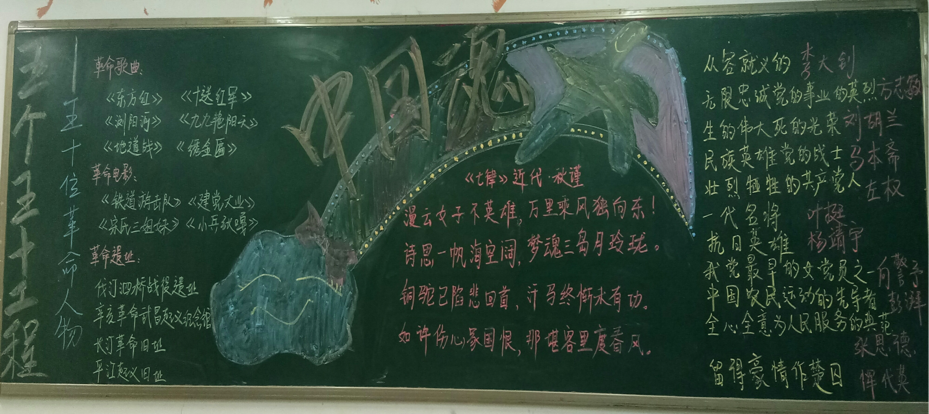 五个五十工程
——五十位革命人物
革命歌曲:
《东方红》 《十送红军》
《浏阳河》 《九九艳阳天》
《地道战》 《绣金匾》
革命电影:
《铁道游击队》《建党大业》
《宋氏三姐妹》《小兵张嘎》
革命遗址:
汀泗桥战役遗址
辛亥革命武昌起义纪念馆
长汀革命旧址
平江起义旧址
中国魂
《七律》近代·秋瑾
漫云女子不英雄,万里乘风独向东!
诗思一帆海空阔,梦魂三岛月玲珑。
铜驼已陷悲回首,汗马终惭水有功。
如许伤心家国恨,那堪客里度春风。
从容就义的 李大钊
无限忠诚党的事业的英烈 方志敏
生的伟大死的光荣 刘胡兰
民族英雄党的战士 马本斋
壮烈牺牲的共产党人 左权
一代名将 叶挺
抗日英雄 杨靖宇
我党最早的女党员之一 向警予
中国农民运动的先导者 彭湃
全心全意为人民服务的典范 张思德
留得豪情作楚囚 恽代英